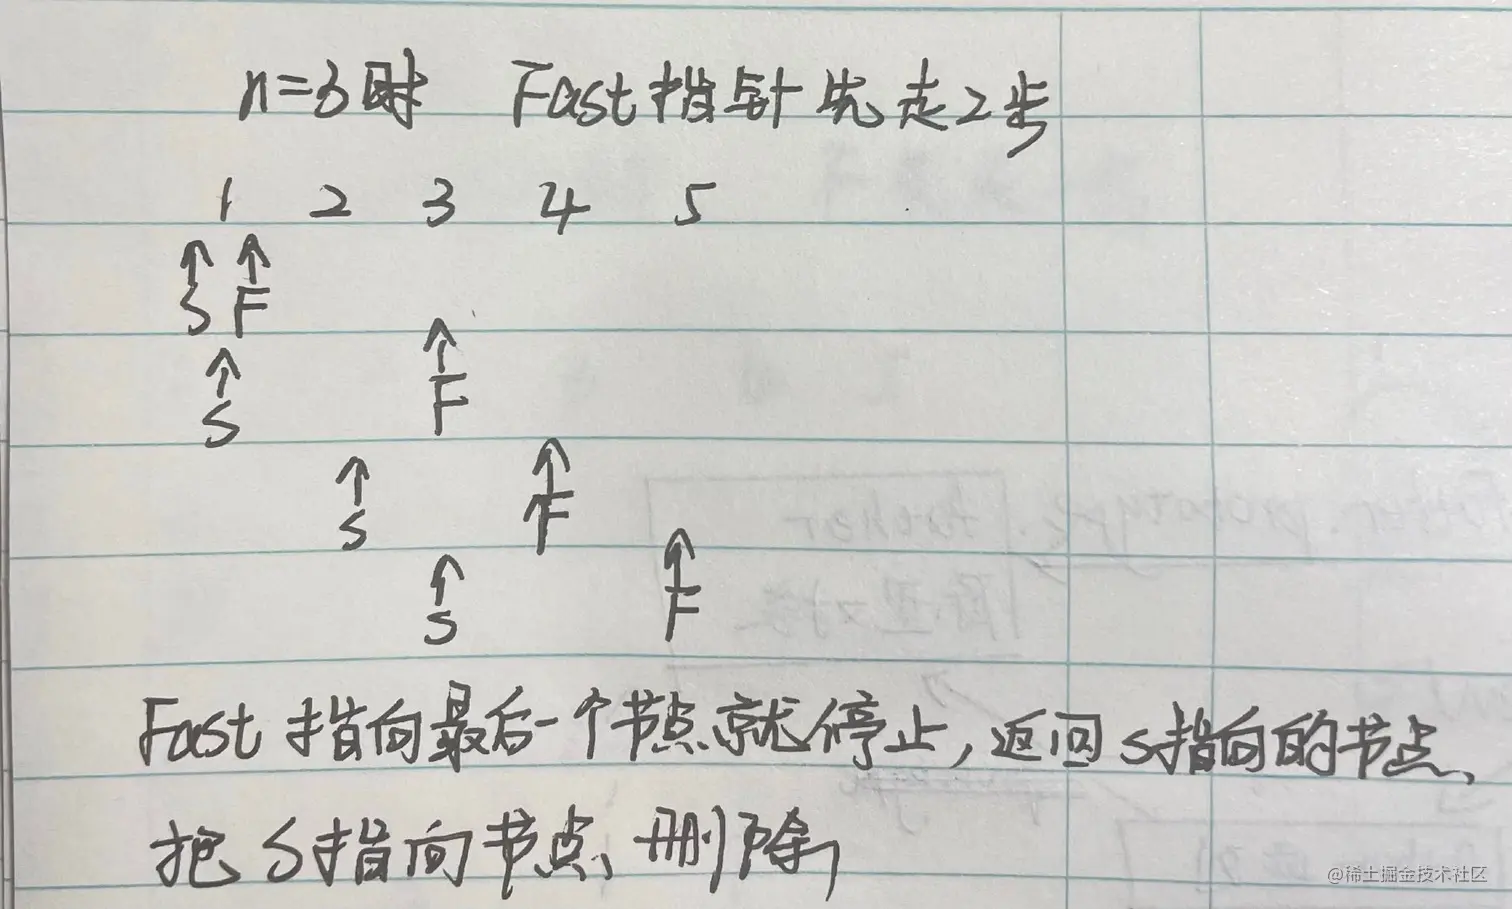 n=3时 Fast指针先走2步
1 2 3 4 5
S F
S F
S F
S F
Fast 指向最后一个节点就停止，返回S指向的节点、
把S指向节点删除，
@稀土掘金技术社区